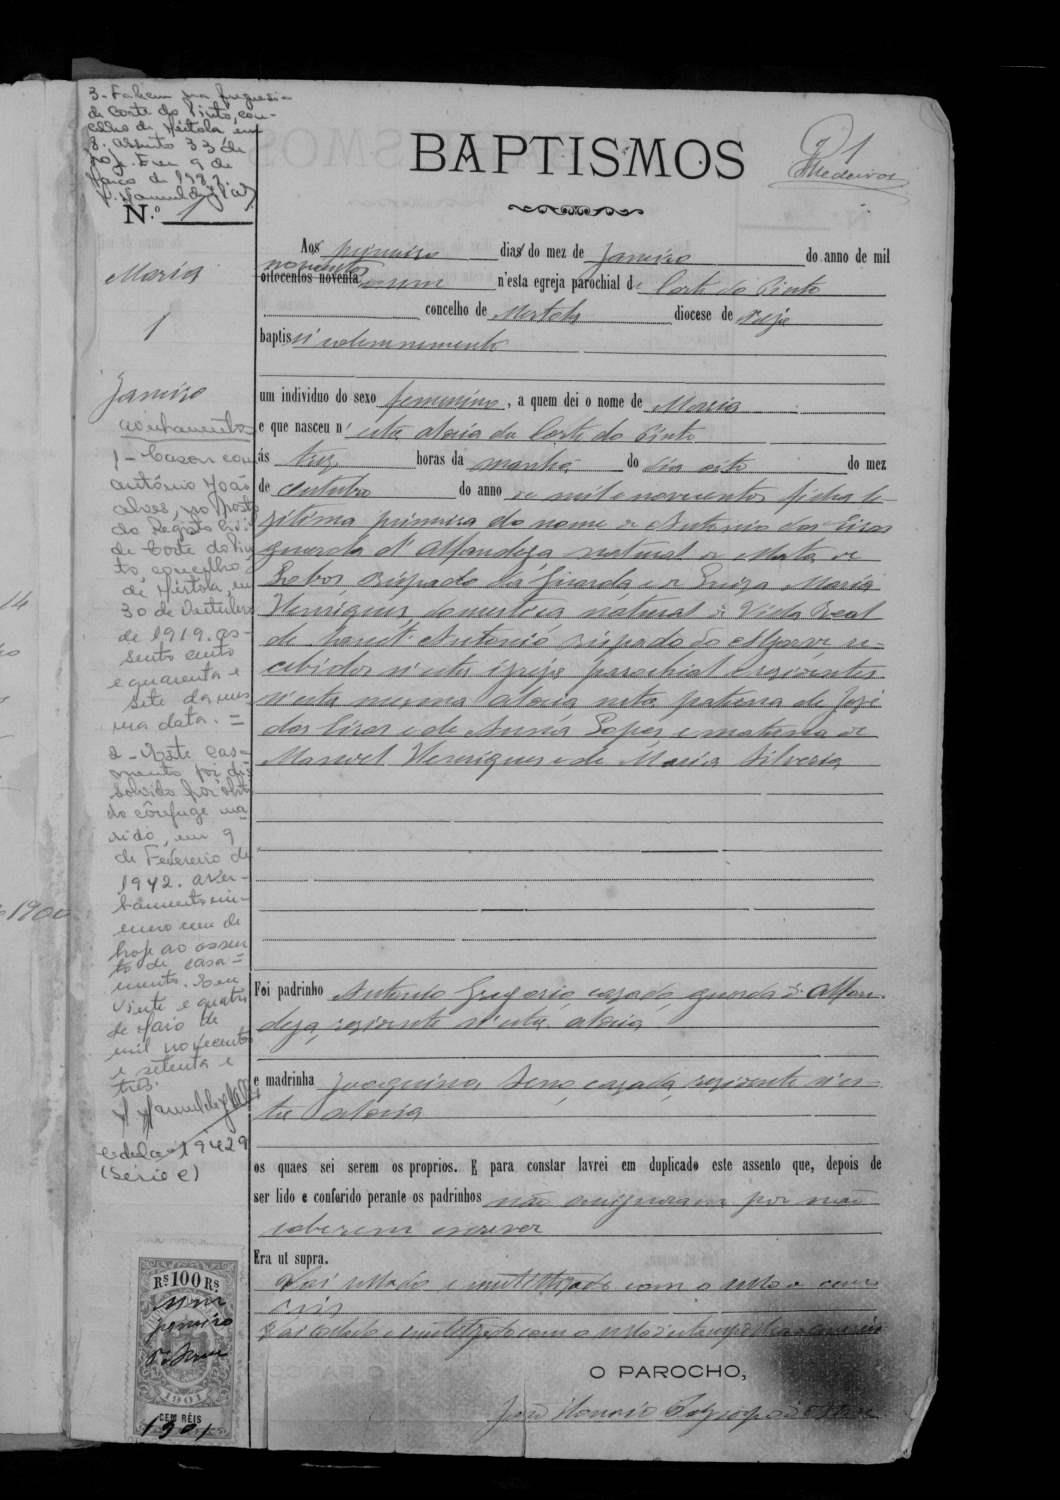 3 - Faleceu na freguesia
de Corte do Pinto, con-
celho de Mértola em
8. assento 33 de
hoje. Em 9 de
de 19
BAPTISMOS
1
Medeiros
N.º 1
Maria
1
Janeiro
Aos primeiro dias do mez de Janeiro do anno de mil
oitocentos noventa novecentos e um n'esta egreja parochial de Corte do Pinto
concelho de Mertola diocese de Beja
baptisei solemnemente
um individuo do sexo feminino, a quem dei o nome de Maria
e que nasceu n'esta aldeia da Corte do Pinto
ás trez horas da manhã do dia oito do mez
de Outubro do anno de mil e novecentos filha le-
gitima primeira do nome de Antonio dos
guarda d'Alfandega natural de Mata de
Lobos, Bispado da Guarda e de Luiza Maria
Henriques, domestica natural de Villa Real
de Santo Antonio Bispado do Algarve, re-
cebidos n'esta igreja parochial e residentes
n'esta mesma aldeia neta paterna de José
dos e de Anna Lopes e materna de
Manuel Henriques e de Maria Silveria
Averbamentos
1 - Casou com
António João
Alves, no Posto
do Registo Civil
de Corte do Pin-
to, concelho
de Mértola, em
30 de Outubro
de 1919. as-
sento cento
e quarenta e
sete da mes-
ma data. =
2 - Este cas-
mento foi dis-
solvido por óbito
do cônjuge ma-
rido, em 9
de Fevereiro de
1942. Aver-
bamento nú-
mero um de
hoje ao assen-
to de casa=
mento. Em
vinte e quatro
de Maio de
mil novecentos
e setenta e
três.
Cedula nº 19429
(Série C)
Foi padrinho Antonio Gregorio, cazado, guarda d'Alfan-
dega, residente n'esta aldeia
e madrinha Joaquina, cazada, residente n'es-
ta aldeia
os quaes sei serem os proprios. E para constar lavrei em duplicado este assento que, depois de
ser lido e conferido perante os padrinhos não assignaram por não
saberem escrever
Era ut supra.
Foi sellado e inutilizado com o sello de cem
reis
O PAROCHO,
José
Rs 100 Rs
Um
Janeiro
1901
CEM RÉIS
1901
14
1900